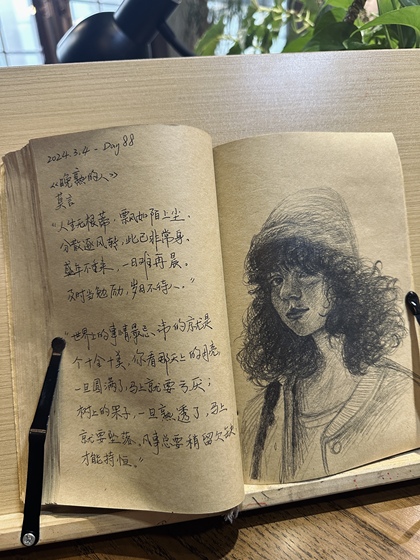 2024.3.4 - Day 88
《晚熟的人》
莫言
"人生无根蒂，飘如陌上尘。
分散逐风转，此已非常身。
盛年不重来，一日难再晨。
及时当勉励，岁月不待人。"
"世界上的事情最忌讳的就是
个十全十美，你看那天上的月亮，
一旦圆满了，马上就要亏厌；
树上的果子，一旦熟透了，马上
就要坠落。凡事总要稍留欠缺
才能持恒。"